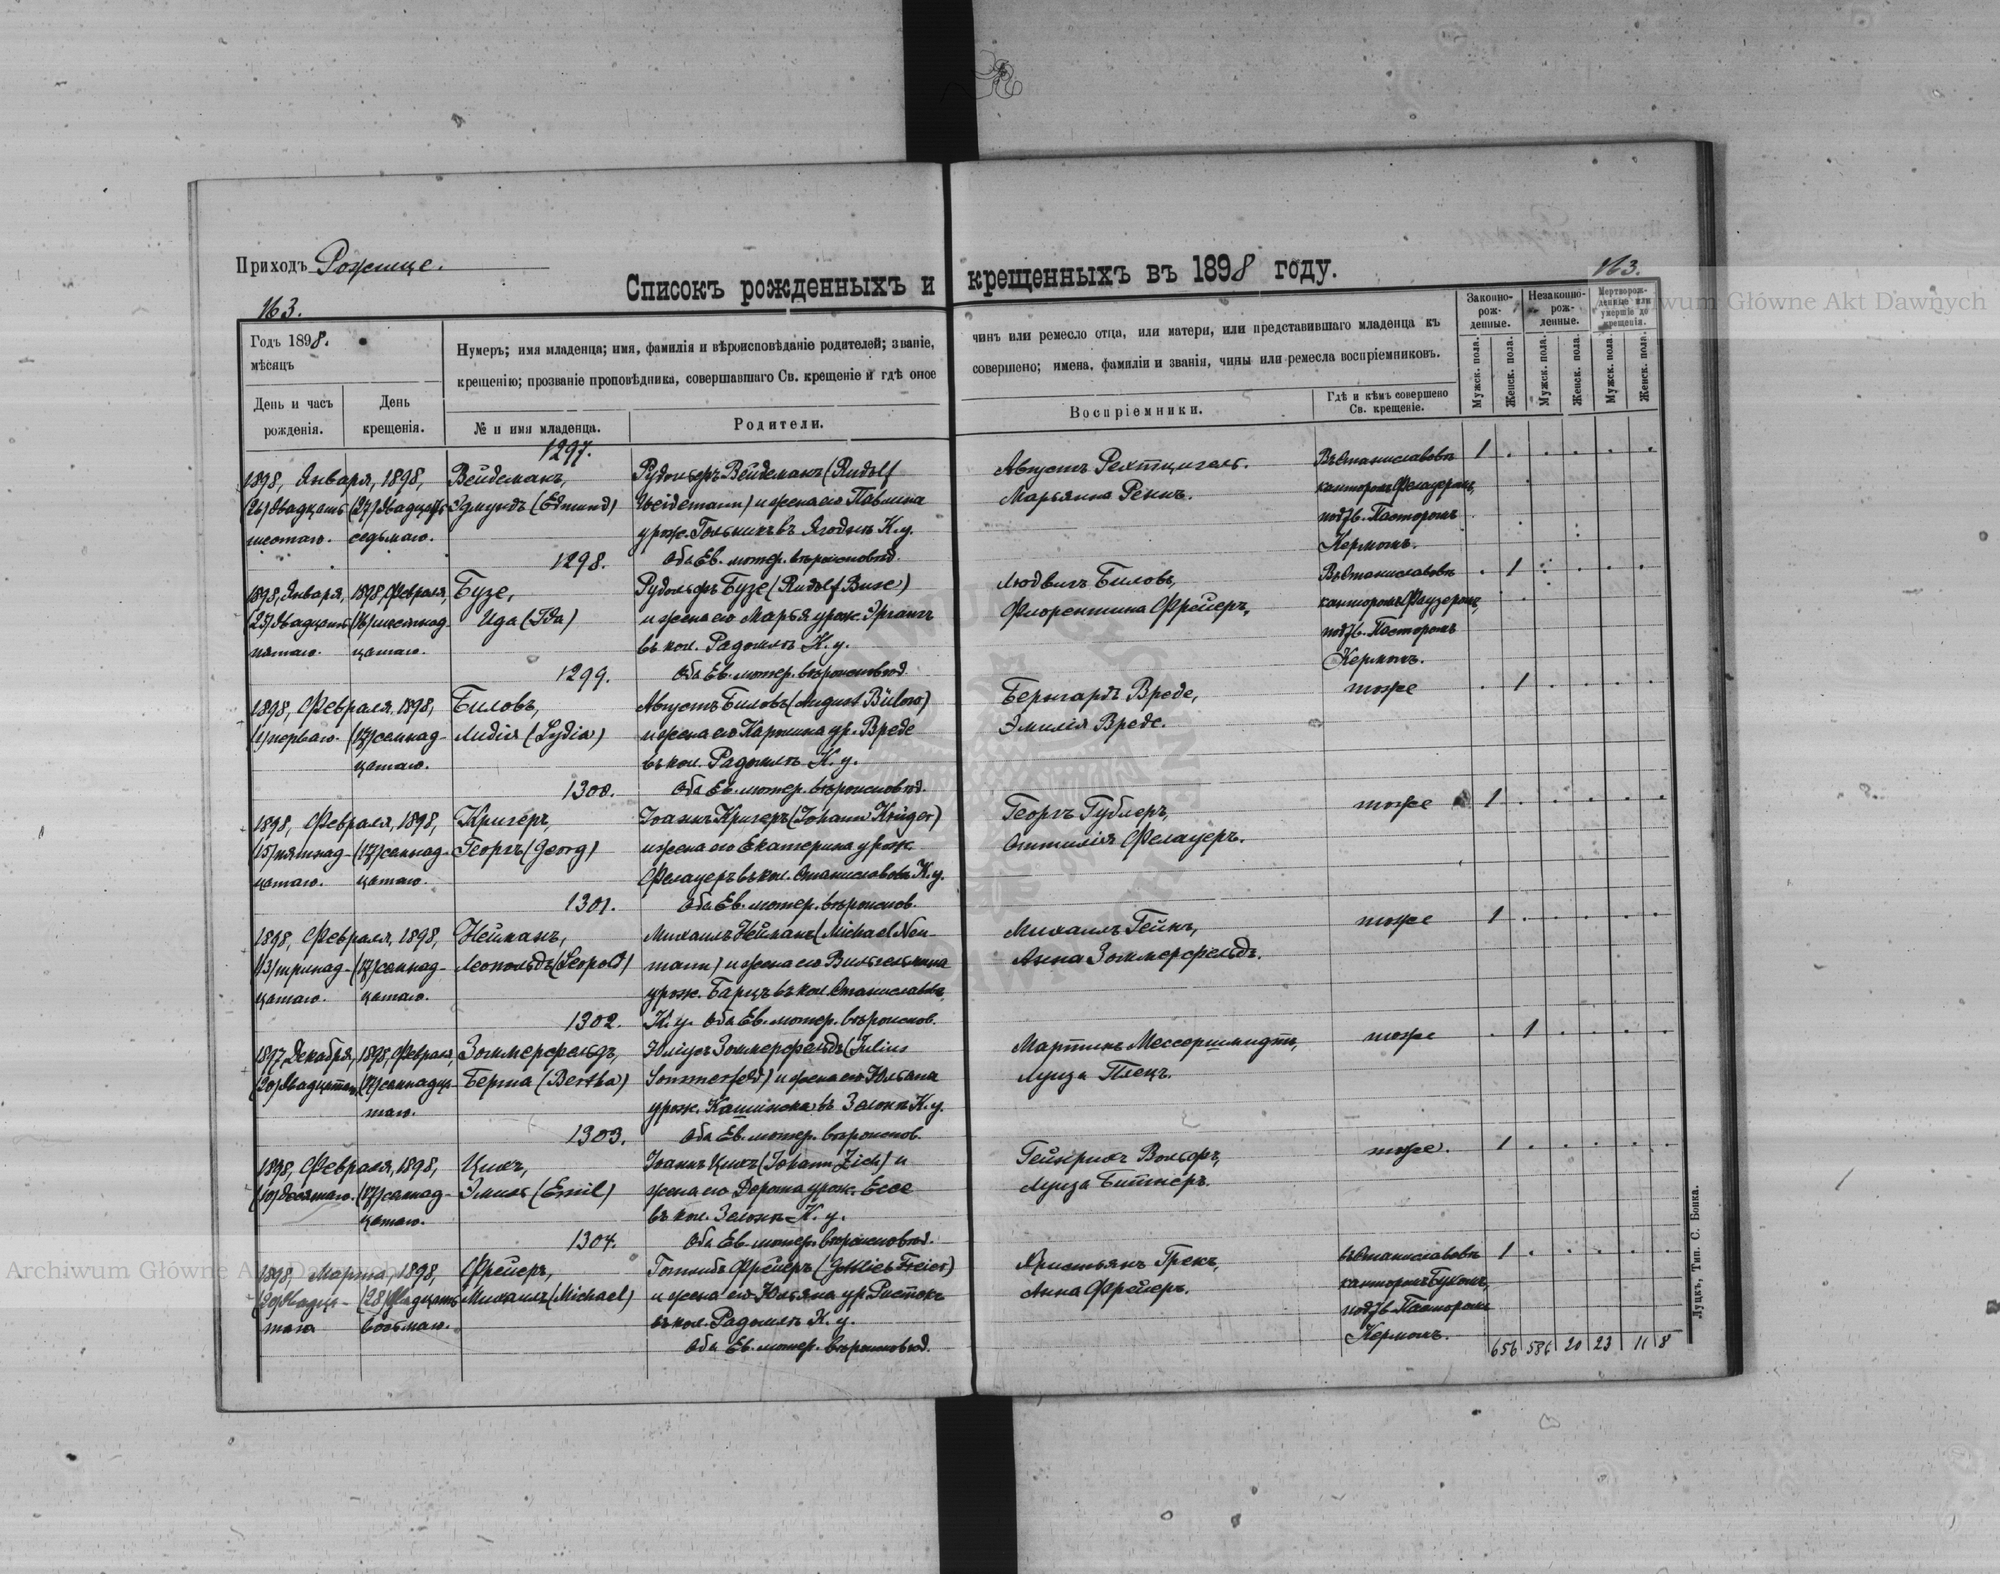 Приходъ Рожище.
Списокъ рожденныхъ и крещенныхъ въ 1898 году.
163.
163.
Годъ 1898.
мѣсяцъ
День и часъ
рожденія.
День
крещенія.
Нумеръ; имя младенца; имя, фамилія и вѣроисповѣданіе родителей; званіе,
крещенію; прозваніе проповѣдника, совершавшаго Св. крещеніе и гдѣ оное
№ и имя младенца.
Родители.
чинъ или ремесло отца, или матери, или представившаго младенца къ
совершено; имена, фамиліи и званія, чины или ремесла воспріемниковъ.
Воспріемники.
Гдѣ и кѣмъ совершено
Св. крещеніе.
Законно-
рож-
денные.
Незаконно-
рож-
ленные.
Мертворож-
денные или
умершіе до
крещенія.
Мужск. пола.
Женск. пола.
Мужск. пола.
Женск. пола.
Мужск. пола.
Женск. пола.
1297.
1898, Января, 1898,
(26) двадцать (27) двадцать
шестаго. седьмаго.
Вейдеманъ,
Эдмундъ (Edmund)
Рудольфъ Вейдеманъ (Rudolf
Weidemann) и жена его Павлина
урож. въ К. у.
Оба Ев. лютер. вѣроисповѣд.
Августъ
Марьянна Реннъ.
Въ Станиславовѣ
канторомъ Фелауеромъ,
подтв. Пасторомъ
Кермомъ.
1 . . . . .
1298.
1898, Января, 1898, Февраля,
(25) двадцать (16) шестнад-
пятаго. цатаго.
Бузе,
Ида (Ida)
Рудольфъ Бузе (Rudolf Buse)
и жена его Марья урож.
въ кол. К. у.
Оба Ев. лютер. вѣроисповѣд.
Людвигъ Биловъ,
Флорентина Фрейеръ,
Въ Станиславовѣ
канторомъ
подтв. Пасторомъ
Кермомъ.
. 1 . . . .
1299.
1898, Февраля, 1898,
(1) перваго. (17) семнад-
цатаго.
Биловъ,
Лидія (Lydia)
Августъ Биловъ (August Bülow)
и жена его ур. Вреде
въ кол. К. у.
Оба Ев. лютер. вѣроисповѣд.
Бернгардъ Вреде,
Эмилія Вреде.
тоже
. 1 . . . .
1300.
1898, Февраля, 1898,
(15) пятнад- (17) семнад-
цатаго. цатаго.
Кригеръ,
Георгъ (Georg)
Іоаннъ Кригеръ (Johann Krüger)
и жена его Екатерина урож.
Фелауеръ въ кол. Станиславовъ К. у.
Оба Ев. лютер. вѣроиспов.
Георгъ Гублеръ,
Оттилія Фелауеръ.
тоже
1 . . . . .
1301.
1898, Февраля, 1898,
(13) тринад- (17) семнад-
цатаго. цатаго.
Нейманъ,
Леопольдъ (Leopold)
Михаилъ Нейманъ (Michael Neu-
mann) и жена его Вильгельмина
урож. Барцъ въ кол. Станиславовъ
К. у. Оба Ев. лютер. вѣроиспов.
Михаилъ Гейнъ,
Анна Зоммерфельдъ.
тоже
1 . . . . .
1302.
1897, Декабря, 1898, Февраля,
(20) двадцатаго, (17) семнадца-
таго.
Зоммерфельдъ,
Берта (Bertha)
Юліусъ Зоммерфельдъ (Julius
Sommerfeld) и жена его Юліана
урож. въ К. у.
Оба Ев. лютер. вѣроиспов.
Мартинъ Мессершмидтъ,
Луиза Плецъ.
тоже
. 1 . . . .
1303.
1898, Февраля, 1898,
(10) десятаго. (17) семнад-
цатаго.
Цихъ,
Эмиль (Emil)
Іоаннъ Цихъ (Johann Zich) и
жена его Дорота урож. Бессе
въ кол. К. у.
Оба Ев. лютер. вѣроисповѣд.
Гейнрихъ Вольфъ,
Луиза Битнеръ.
тоже.
1 . . . . .
1304.
1898, Марта, 1898,
(20) двадца- (28) двадцать
таго восьмаго.
Фрейеръ,
Михаилъ (Michael)
Готлибъ Фрейеръ (Gottlieb Freier)
и жена его Юльяна ур.
въ кол. К. у.
Оба Ев. лютер. вѣроисповѣд.
Христьянъ Грекъ,
Анна Фрейеръ.
въ Станиславовѣ
канторомъ
подтв. Пасторомъ
Кермомъ.
1 . . . . .
656 586 20 23 11 8
Луцкъ, Тип. С. Бонка.
Archiwum Główne Akt Dawnych
Archiwum Główne Akt Dawnych